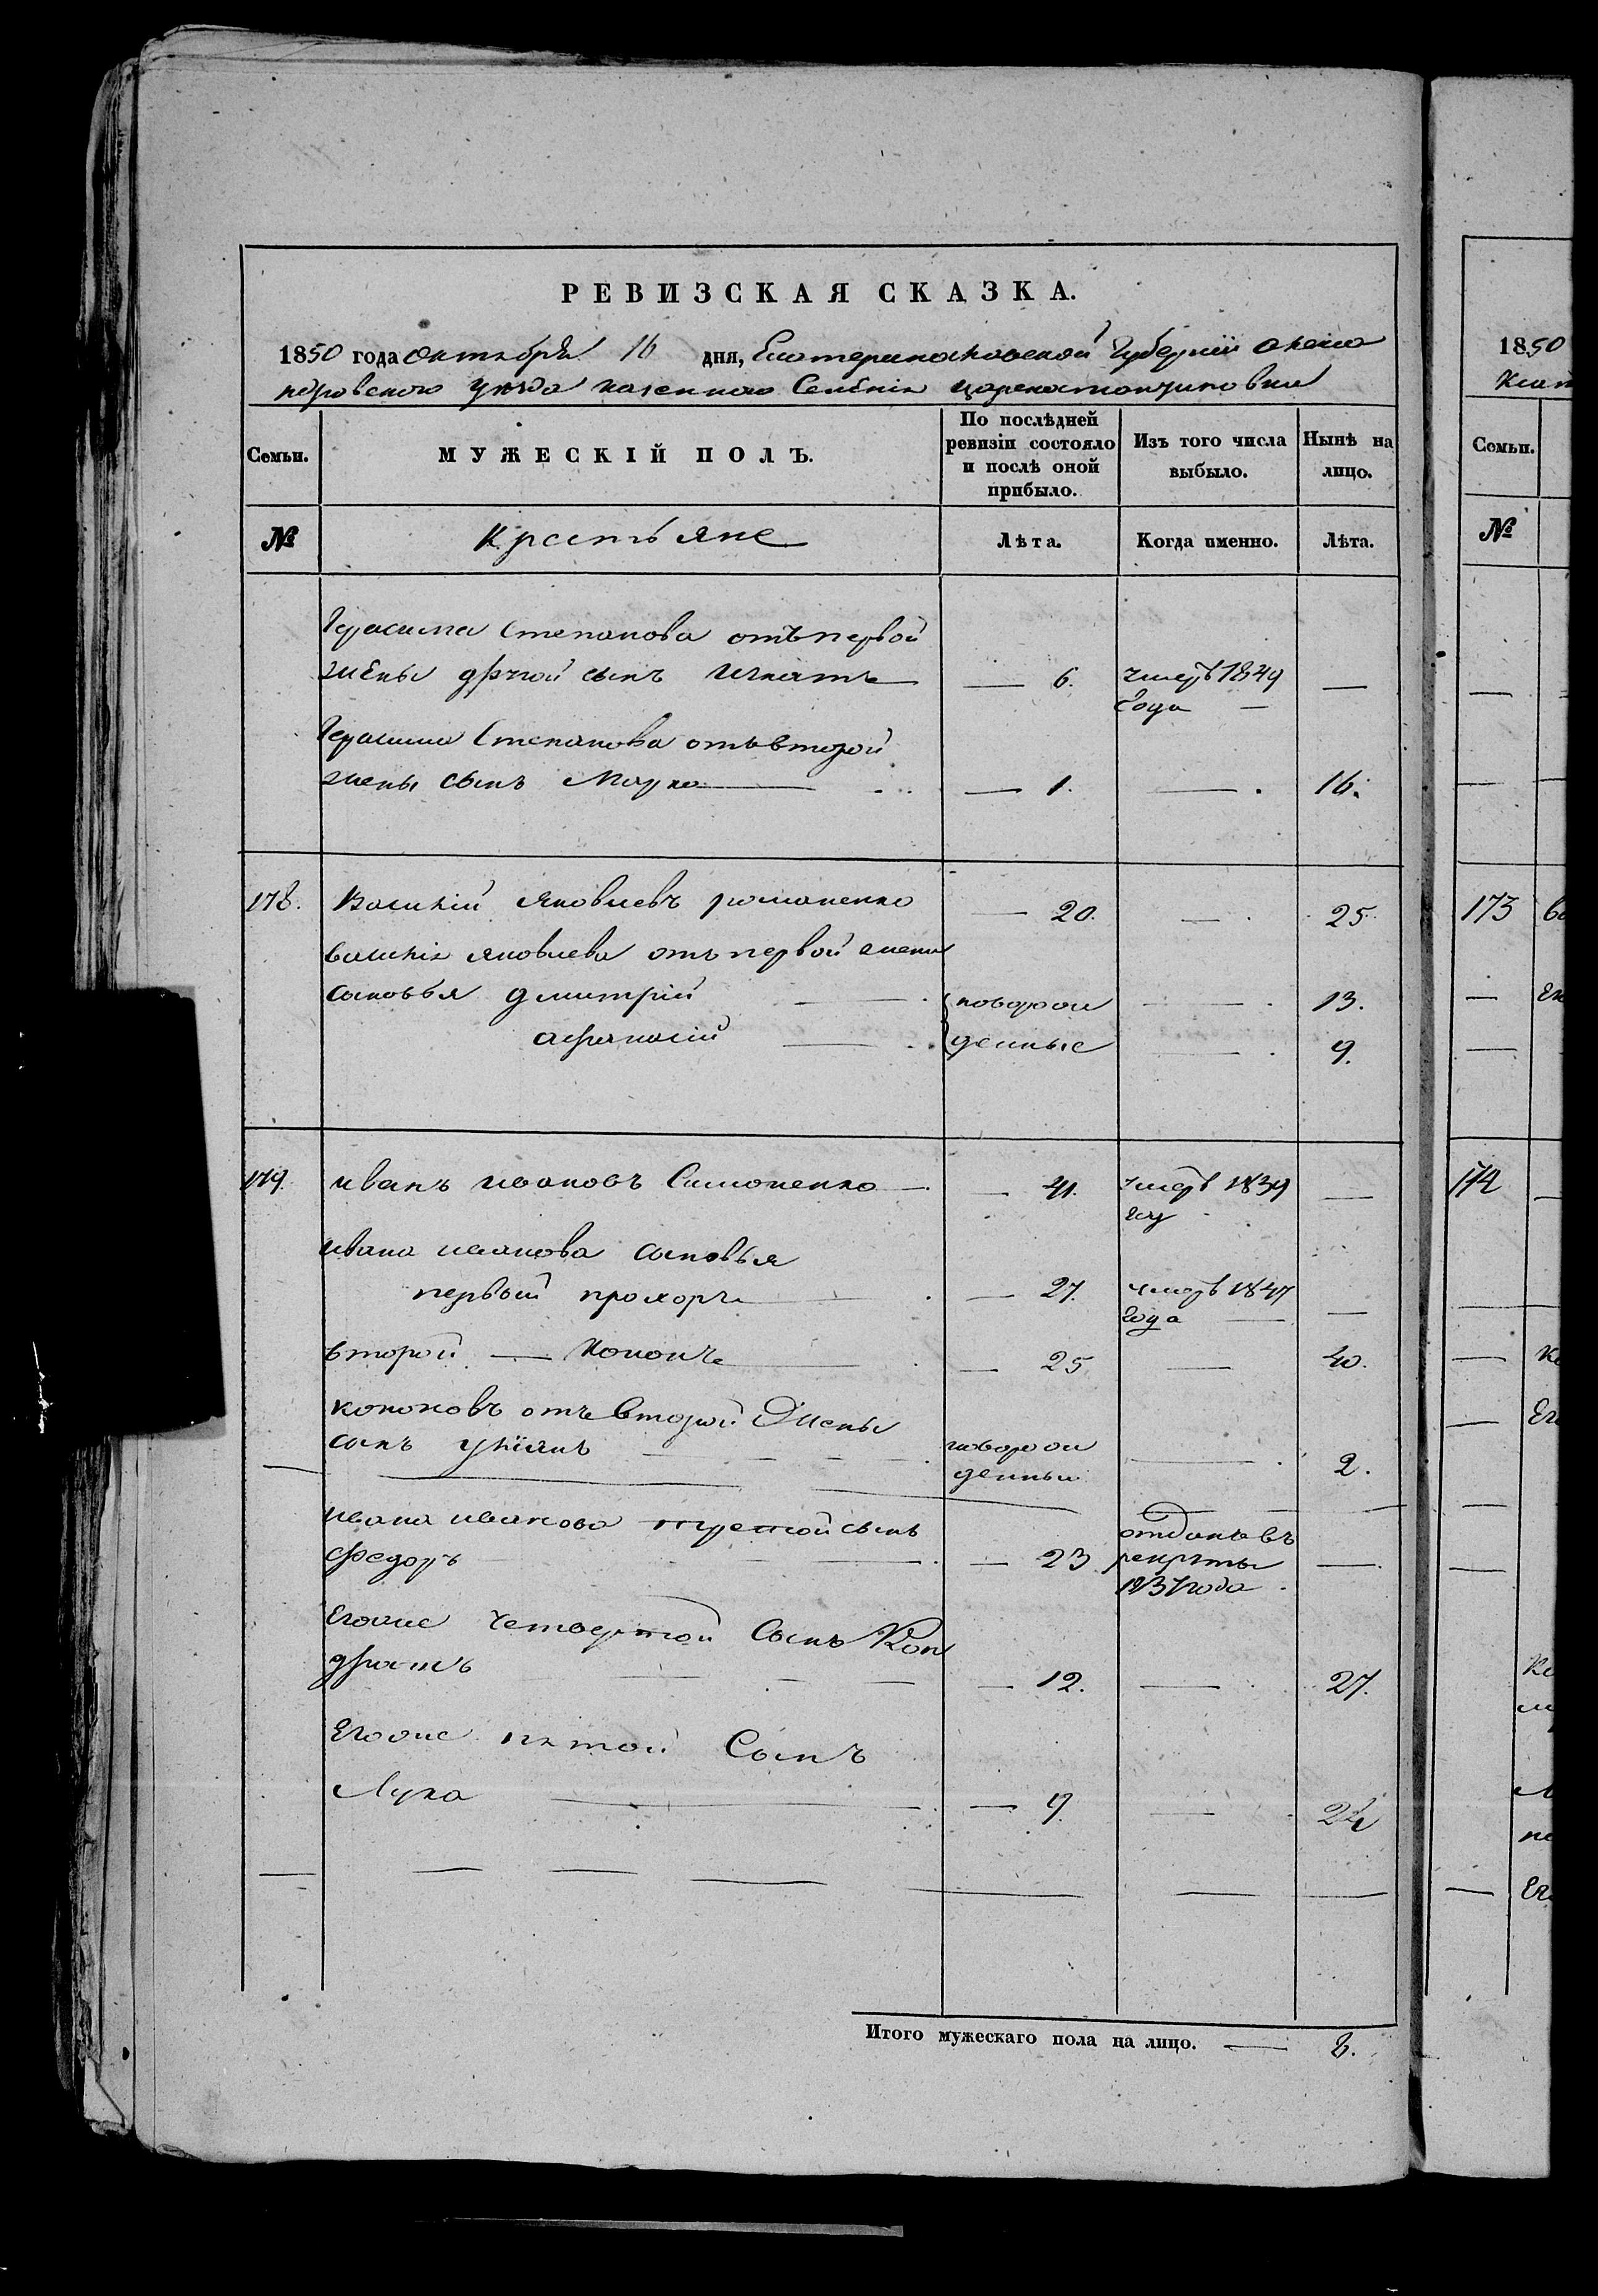 РЕВИЗСКАЯ СКАЗКА.
1850 года октября 16 дня, Екатеринославской Губернии Алекса
ндровскаго уезда казеннаго Селения Царекостантиновки
Семьи.
МУЖЕСКІЙ ПОЛЪ.
По послѣдней ревизіи состояло и послѣ оной прибыло.
Изъ того числа выбыло.
Нынѣ на лицо.
№
Крестьяне
Лѣта.
Когда именно.
Лѣта.
Герасима Степанова отъ первой
жены другой сынъ Игнатъ — 6. умеръ 1849 года —
Герасима Степанова отъ второй
жены сынъ Марко — 1. — 16.
178. Василий Яковлевъ романенко — 20. — 25
василия яковлева отъ первой жены
сыновья дмитрий новорож — 13.
афанасий денные — 9.
179. иванъ ивановъ Симоненко — 41. умеръ 1839 году —
ивана иванова сыновья
первый прохоръ — 27. умеръ 1847 года —
второй — Кононъ — 25 — 40.
кононовъ отъ второй жены
сынъ новорож денный — 2.
ивана иванова третой сынъ
федоръ — 23. отданъ въ рекруты 1837 года —
Егоже четвертой Сынъ Кон
дратъ — 12. — 27.
Егоже пятой Сынъ
Лука — 9. — 24
Итого мужескаго пола на лицо. — 8.
1850
Семьи.
№
173
174